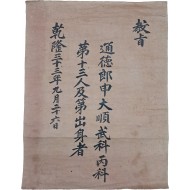 教旨
通德郎申大順武科丙科
第十三人及第出身者
乾隆三十三年九月二十六日